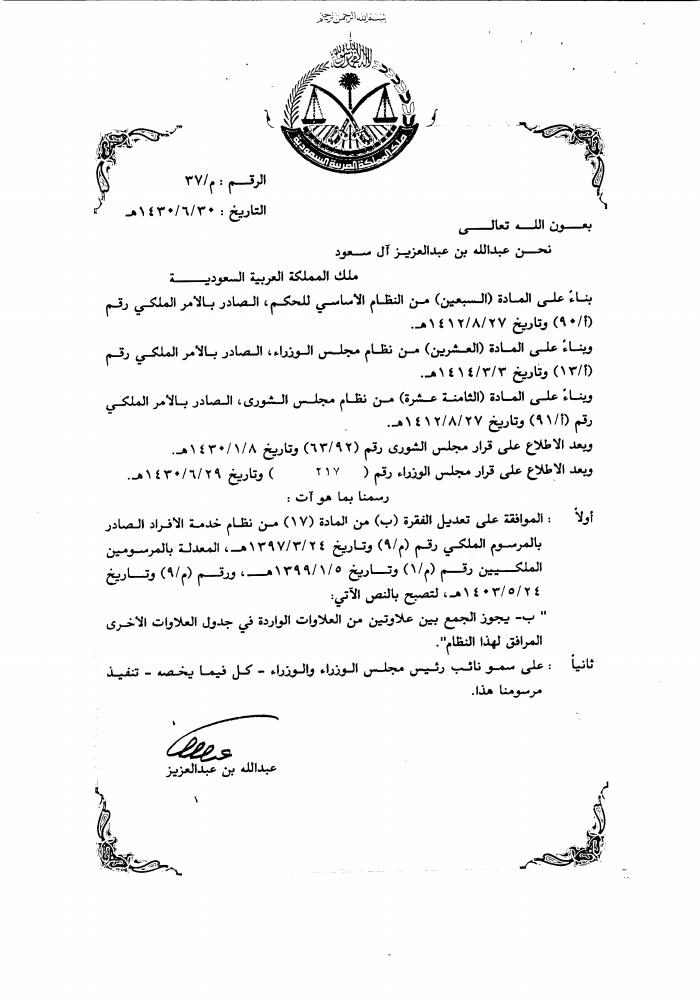 بسم الله الرحمن الرحيم
لا إله إلا الله محمد رسول الله
ملك المملكة العربية السعودية
الرقـــم : م/٣٧
التاريخ : ١٤٣٠/٦/٣٠هـ
بعـــون اللـــه تعالـــى
نحـــن عبدالله بن عبدالعزيـز آل سـعود
ملك المملكة العربية السعوديـــــة
بنـاءً علـى المـادة (السـبعين) مـن النظام الأساسي للحكم، الصـادر بـالأمر الملكـي رقم
(أ/٩٠) وتاريخ ١٤١٢/٨/٢٧هـ.
وبنـاءً علـى المـادة (العشـرين) مـن نظام مجلس الوزراء، الصـادر بـالأمر الملكـي رقم
(أ/١٣) وتاريخ ١٤١٤/٣/٣هـ.
وبنـاءً علـى المـادة (الثامنـة عشـرة) مـن نظـام مجلـس الشورى، الصـادر بـالأمر الملكـي
رقم (أ/٩١) وتاريخ ١٤١٢/٨/٢٧هـ.
وبعد الاطلاع على قرار مجلس الشورى رقم (٦٣/٩٢) وتاريخ ١٤٣٠/١/٨هـ.
وبعد الاطلاع على قرار مجلس الوزراء رقم ( ٢١٧ ) وتاريخ ١٤٣٠/٦/٢٩هـ.
رسمنا بما هو آت :
أولاً : الموافقة على تعديل الفقرة (ب) من المادة (١٧) مـن نظام خدمة الأفراد الصادر
بالمرسوم الملكي رقم (م/٩) وتـاريخ ١٣٩٧/٣/٢٤هــ، المعدلة بالمرسومين
الملكـــيين رقـــم (م/١) وتـــاريخ ١٣٩٩/١/٥هــــ، ورقـــم (م/٩) وتـــاريخ
١٤٠٣/٥/٢٤هـ، لتصبح بالنص الآتي:
" ب- يجوز الجمع بين علاوتين من العلاوات الواردة في جدول العلاوات الأخرى
المرافق لهذا النظام".
ثانياً : علـى سمـو نائب رئيـس مجلـس الـوزراء والـوزراء - كـل فيمـا يـخصـه - تنفيـذ
مرسومنا هذا.
عبدالله بن عبدالعزيز
١